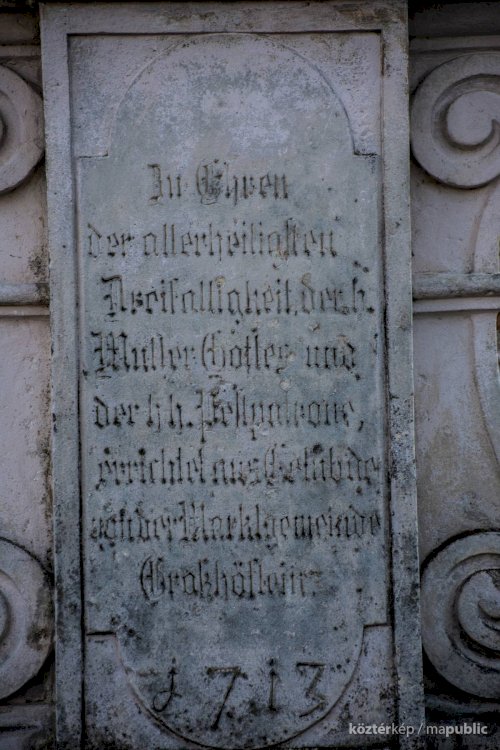 In Ehren
der allerheiligsten
Dreifaltigkeit, der h.
Mutter Gottes und
der h.h. Pestpatrone,
errichtet aus Gelübde
von der Marktgemeinde
Großhöflein.
1713
köztérkép / mapublic